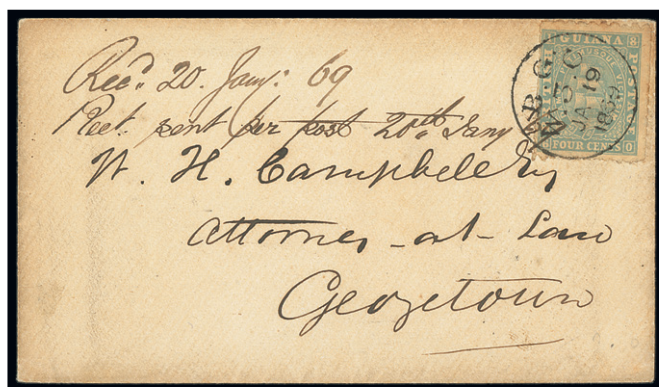 Rec.d 20. Jany: 69
Rect. sent per post 20th Jany
W. H. Campbell Esq
Attorney-at-Law
Georgetown
GUIANA
POSTAGE
FOUR CENTS
B. G.
W. 5 C
JA 19
1869